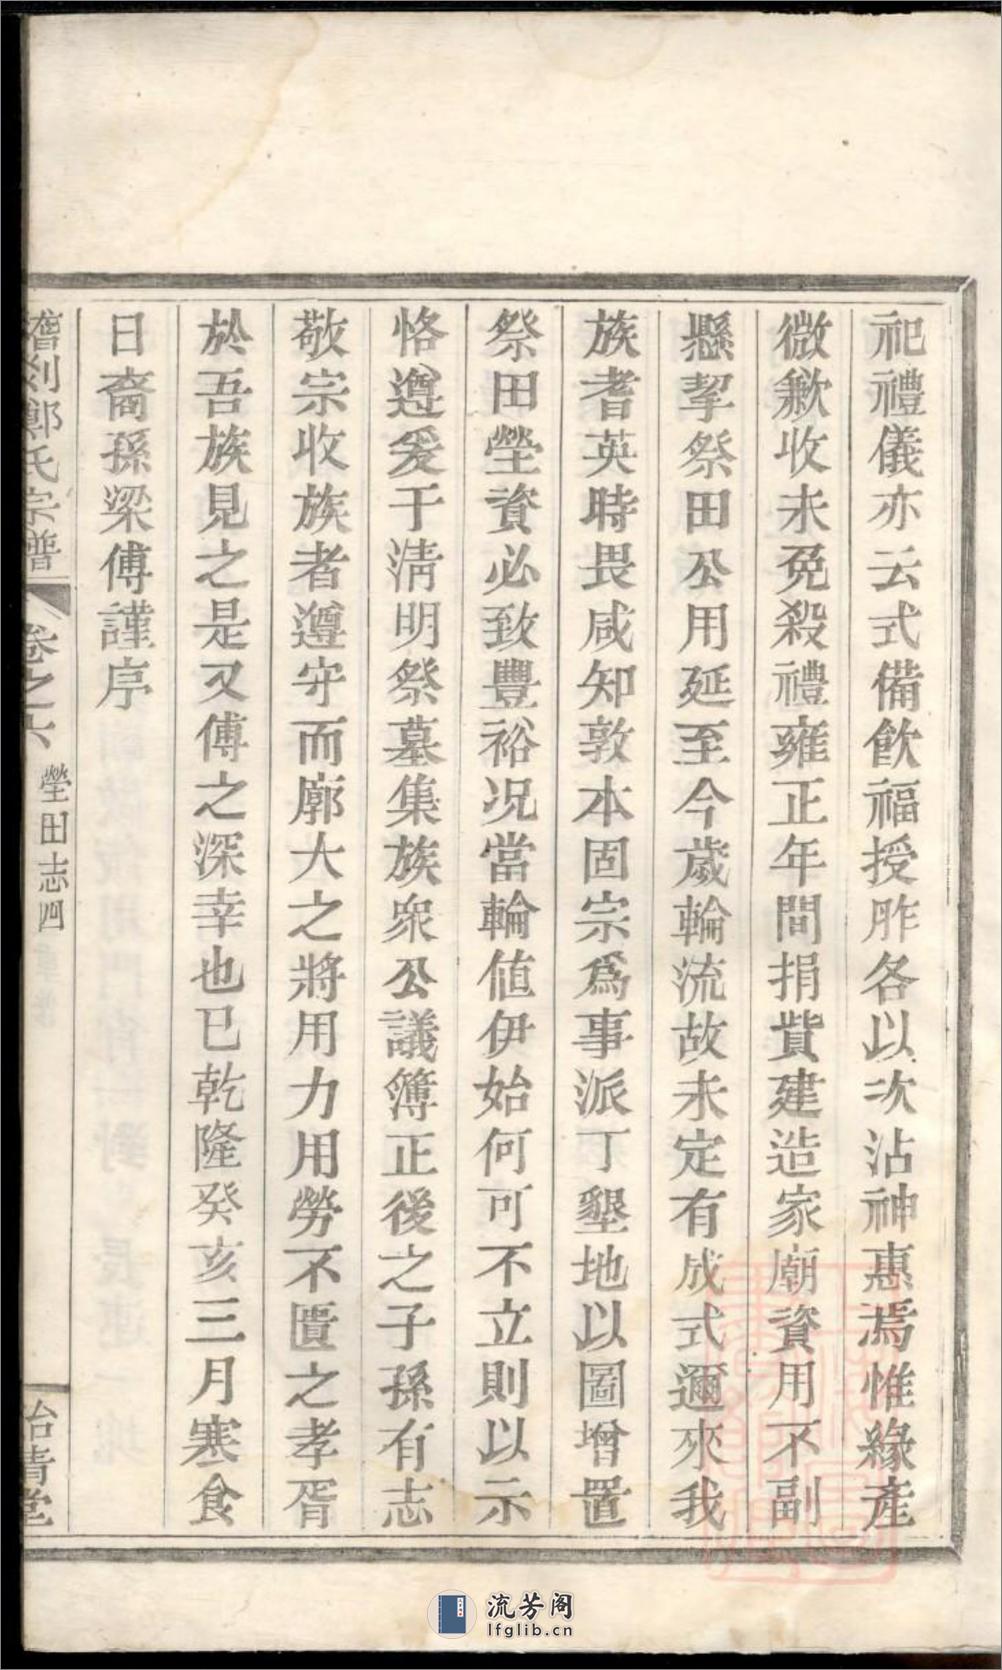 祀禮儀亦云式備飲福授胙各以次沾神惠焉惟緣產
微歉收未免殺禮雍正年間捐貲建造家廟資用不副
懸挈祭田公用延至今歲輪流故未定有成式邇來我
族耆英時畏咸知敦本固宗爲事派丁墾地以圖增置
祭田塋資必致豐裕况當輪値伊始何可不立則以示
恪遵爰于淸明祭墓集族衆公議簿正後之子孫有志
敬宗收族者遵守而廓大之將用力用勞不匱之孝胥
於吾族見之是又傅之深幸也已乾隆癸亥三月寒食
日裔孫梁傅謹序
剡鄭氏宗譜
卷之六
塋田志四
流芳阁
lfglib.cn